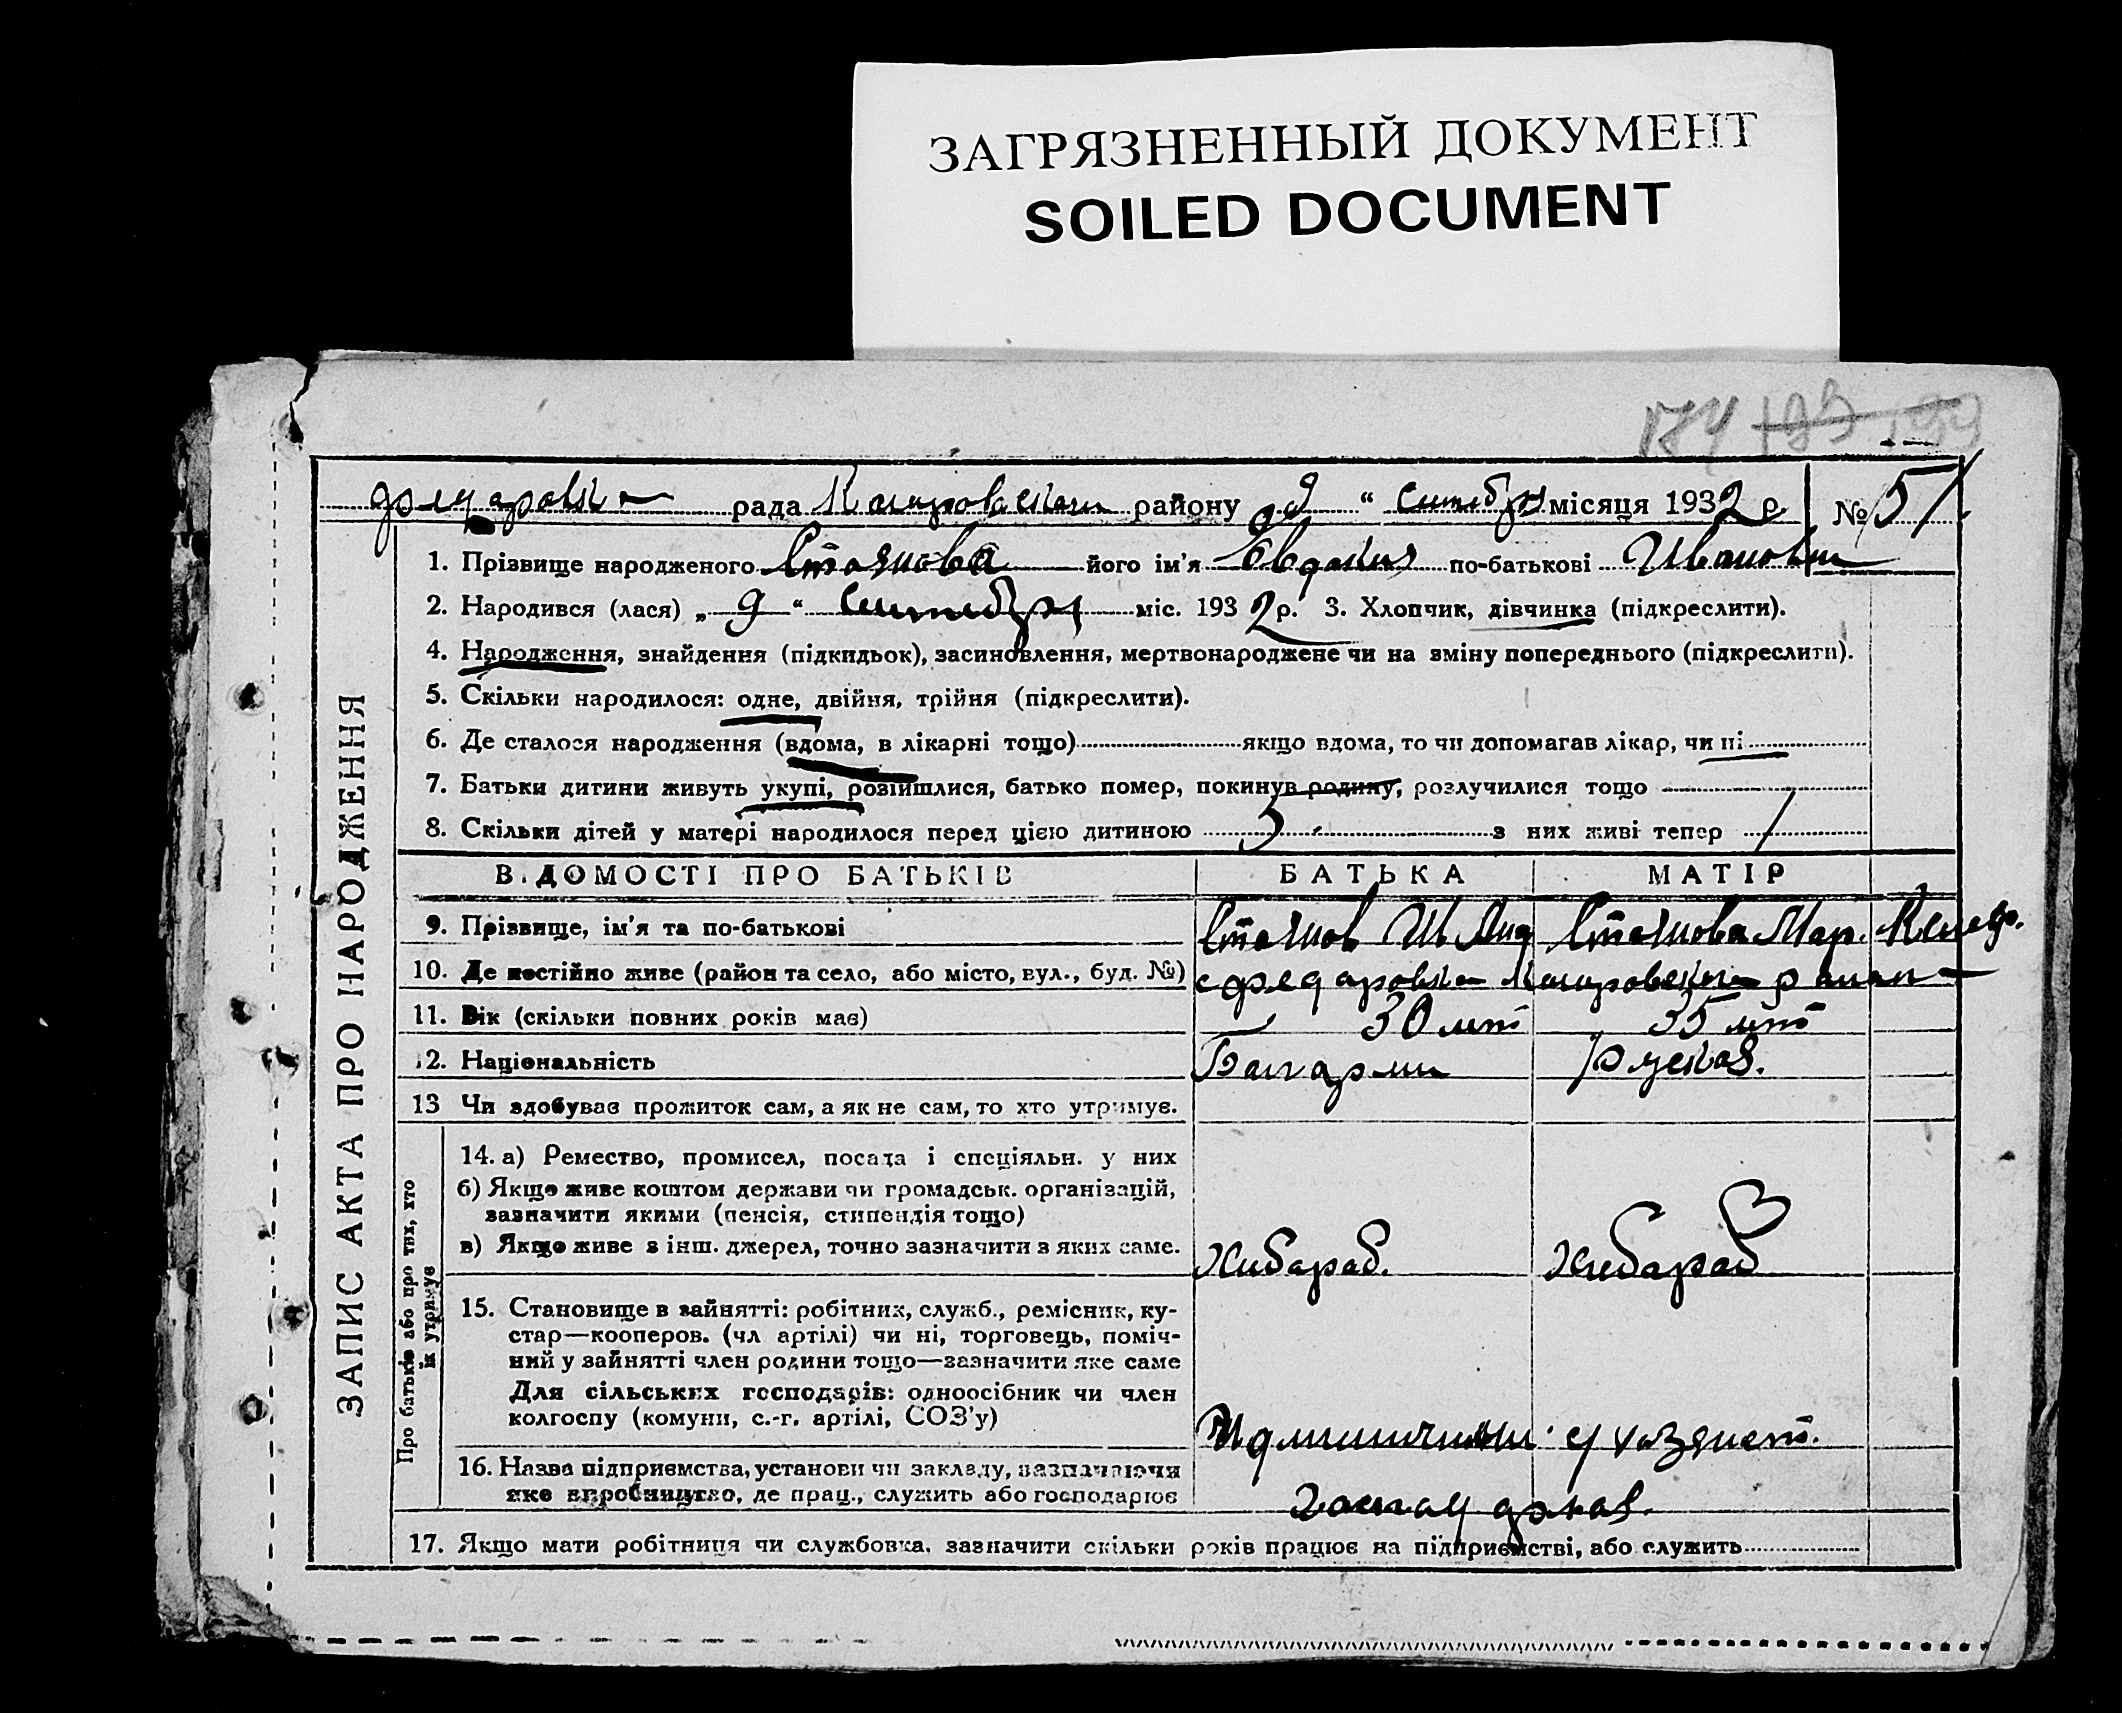 ЗАГРЯЗНЕННЫЙ ДОКУМЕНТ
SOILED DOCUMENT
174 193 199
рада району 9 “ місяця 1932 р № 51
1. Прізвище народженого Стоянова його ім'я Евдокия по-батькові Ивановн
2. Народився (лася) „ 9 “ міс. 193 2 р. 3. Хлопчик, дівчинка (підкреслити).
4. Народження, знайдення (підкидьок), засиновлення, мертвонароджене чи на зміну попереднього (підкреслити).
5. Скільки народилося: одне, двійня, трійня (підкреслити).
6. Де сталося народження (вдома, в лікарні тощо) якщо вдома, то чи допомагав лікар, чи ні
7. Батьки дитини живуть укупі, розійшлися, батько помер, покинув родину, розлучилися тощо
8. Скільки дітей у матері народилося перед цією дитиною з них живі тепер 1
ЗАПИС АКТА ПРО НАРОДЖЕННЯ
ВІДОМОСТІ ПРО БАТЬКІВ БАТЬКА МАТІР
9. Прізвище, ім'я та по-батькові Стоянов Ив Стоянова Мар.
10. Де постійно живе (район та село, або місто, вул., буд. №)
11. Вік (скільки повних років має) 30 лет 35 лет
12. Національність руская.
13 Чи здобував прожиток сам, а як не сам, то хто утримує.
Про батьків або про тих, хто
їх утримує
14. а) Ремество, промисел, посада і спеціяльн. у них
б) Якщо живе коштом держави чи громадськ. організацій,
зазначити якими (пенсія, стипендія тощо)
в) Якщо живе з інш. джерел, точно зазначити з яких саме. хлебороб. хлебороб
15. Становище в зайнятті: робітник, служб., ремісник, ку-
стар—кооперов. (чл артілі) чи ні, торговець, поміч-
ний у зайнятті член родини тощо—зазначити яке саме
Для сільських господарів: одноосібник чи член
колгоспу (комуни, с.-г. артілі, СОЗ'у)
16. Назва підприємства, установи чи закладу, зазначаючи
яке виробництво, де прац., служить або господарює
17. Якщо мати робітниця чи службовка, зазначити скільки років працює на підприємстві, або служить